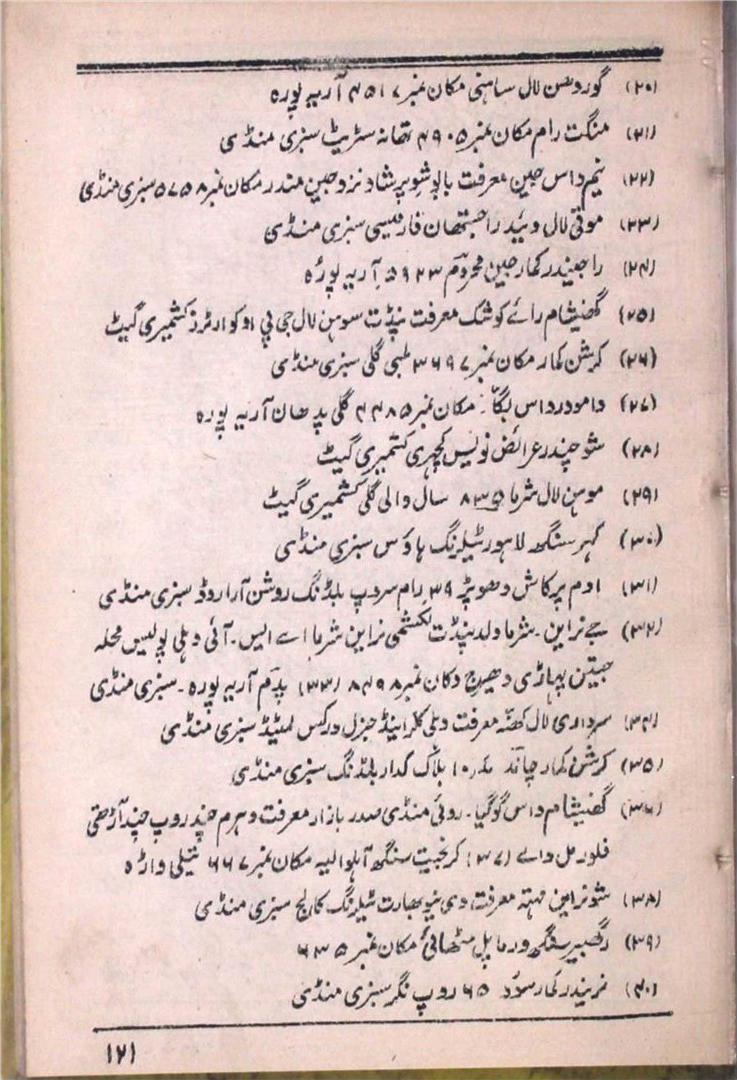 (۲۰) گوردھن لال ساہنی مکان نمبر ۴۵۱۷ آریہ پورہ
(۲۱) منگت رام مکان نمبر ۴۹۰۵ تھانہ سٹریٹ سبزی منڈی
(۲۲) نیم داس جین معرفت بابو شوپرشاد نزد جین مندر مکان نمبر ۵۷۵۸ سبزی منڈی
(۲۳) موتی لال وئید راجستھان فارمیسی سبزی منڈی
(۲۴) راجیندر کمار جین محروم ۵۹۲۳ آریہ پورہ
(۲۵) گھنیشام رائے کوشک معرفت پنڈت سوہن لال جی پی او کوارٹرز کشمیری گیٹ
(۲۶) کرشن کمار مکان نمبر ۳۶۹۷ طبی گلی سبزی منڈی
(۲۷) دامودر داس بگا۔ مکان نمبر ۴۴۸۵ گلی پدھان آریہ پورہ
(۲۸) شو چندر عرائض نویس کچہری کشمیری گیٹ
(۲۹) موہن لال شرما ۸۳۵ سال والی گلی کشمیری گیٹ
(۳۰) مہر سنگھ لاہور ٹیلرنگ ہاؤس سبزی منڈی
(۳۱) اوم پرکاش دھوپڑ ۳۹ رام سروپ بلڈنگ روشن آرا روڈ سبزی منڈی
(۳۲) جے نراین۔ شرما ولد پنڈت لکشمی نراین شرما اے ایس۔ آئی دہلی پولیس محلہ
جیتن پہاڑی دھیرج دکان نمبر ۸۴۹۸ (۳۳) پدم آریہ پورہ۔ سبزی منڈی
(۳۴) سرداری لال کھنہ معرفت دہلی کلاتھ اینڈ جنرل ورکس لمیٹڈ سبزی منڈی
(۳۵) کرشن کمار چاند ۱۰ بلاک کدار بلڈنگ سبزی منڈی
(۳۶) گھنیشام داس گوگیا۔ روئی منڈی صدر بازار معرفت دھرم چند روپ چند آڑھتی
فلور مل والے (۳۷) کرنجیت سنگھ آہلوالیہ مکان نمبر ۶۶۷ تیلی واڑہ
(۳۸) شونراین مہتہ معرفت دی نیو بھارت ٹیلرنگ کالج سبزی منڈی
(۳۹) رگھبیر سنگھ ورما پل مٹھائی مکان نمبر ۶۳۵
(۴۰) نریندر کمار سود ۶۵ روپ نگر سبزی منڈی
۱۲۱